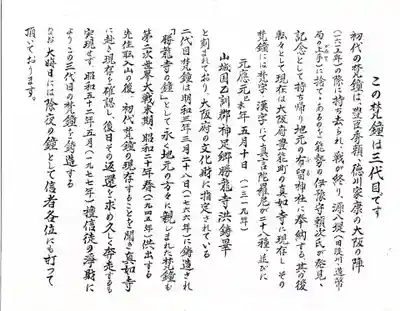 この梵鐘は三代目です
初代の梵鐘は、豊臣秀頼、徳川家康の大阪の陣
(一六一五年)の際に持ち去られ、戦が終り、源八堤(旧淀川・造幣
局の上手)に捨てゝあるのを能勢の伊旅守頼次氏が発見、
記念として持ち帰り地元の有留神社に奉納する。其の後
転々として現在は大阪府豊能町の真如寺に現存し、その
梵鐘には梵字、漢字にて真言陀羅尼が二十八種並びに
元應元己未年五月十日(一三一九年)
山城國乙訓郡神足郷勝龍寺洪鋳畢
と刻まれており、大阪府の文化財に指定されている
二代目梵鐘は明和三年三月二十八日(一七六六年)に鋳造され
「勝龍寺の鐘」として永く地元の方々に親しまれた梵鐘も
第二次世界大戦末期、昭和二十年春(一九四五年)供出する
先住職入山の後、初代梵鐘の現存することを聞き真如寺
に赴き現存を確認し、後日その返還を求め久しく奔走するも
実現せず、昭和五十二年五月(一九七七年)檀信徒の浄財に
よりこの三代目の梵鐘を鋳造する
なお大晦日には除夜の鐘として信者各位にも打って
頂いております。